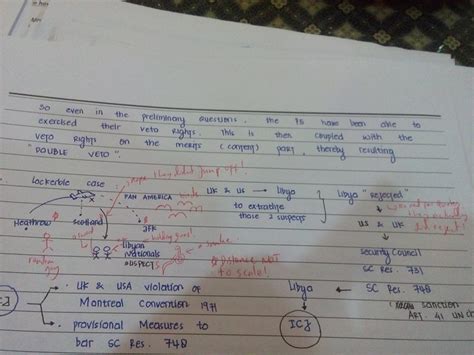 So even in the preliminary questions. the P5 have been able to
exercised their veto rights. This is then coupled with the
veto rights on the merits (content) part, thereby resulting
"DOUBLE VETO".
Lockerbie case
PAN AMERICA
UK & US → Libya
Libya "rejected"
to extradite
those 2 suspects
US & UK
Heathrow
Scotland
JFK
Libyan
Nationals
SUSPECTS
Distance NOT
to scale!
random
guy
Security Council
SC Res. 731
UK & USA violation of
Montreal Convention 1971
Libya
SC Res. 748
sanction
ART. 41 UN
ICJ
provisional Measures to
bar SC Res. 748